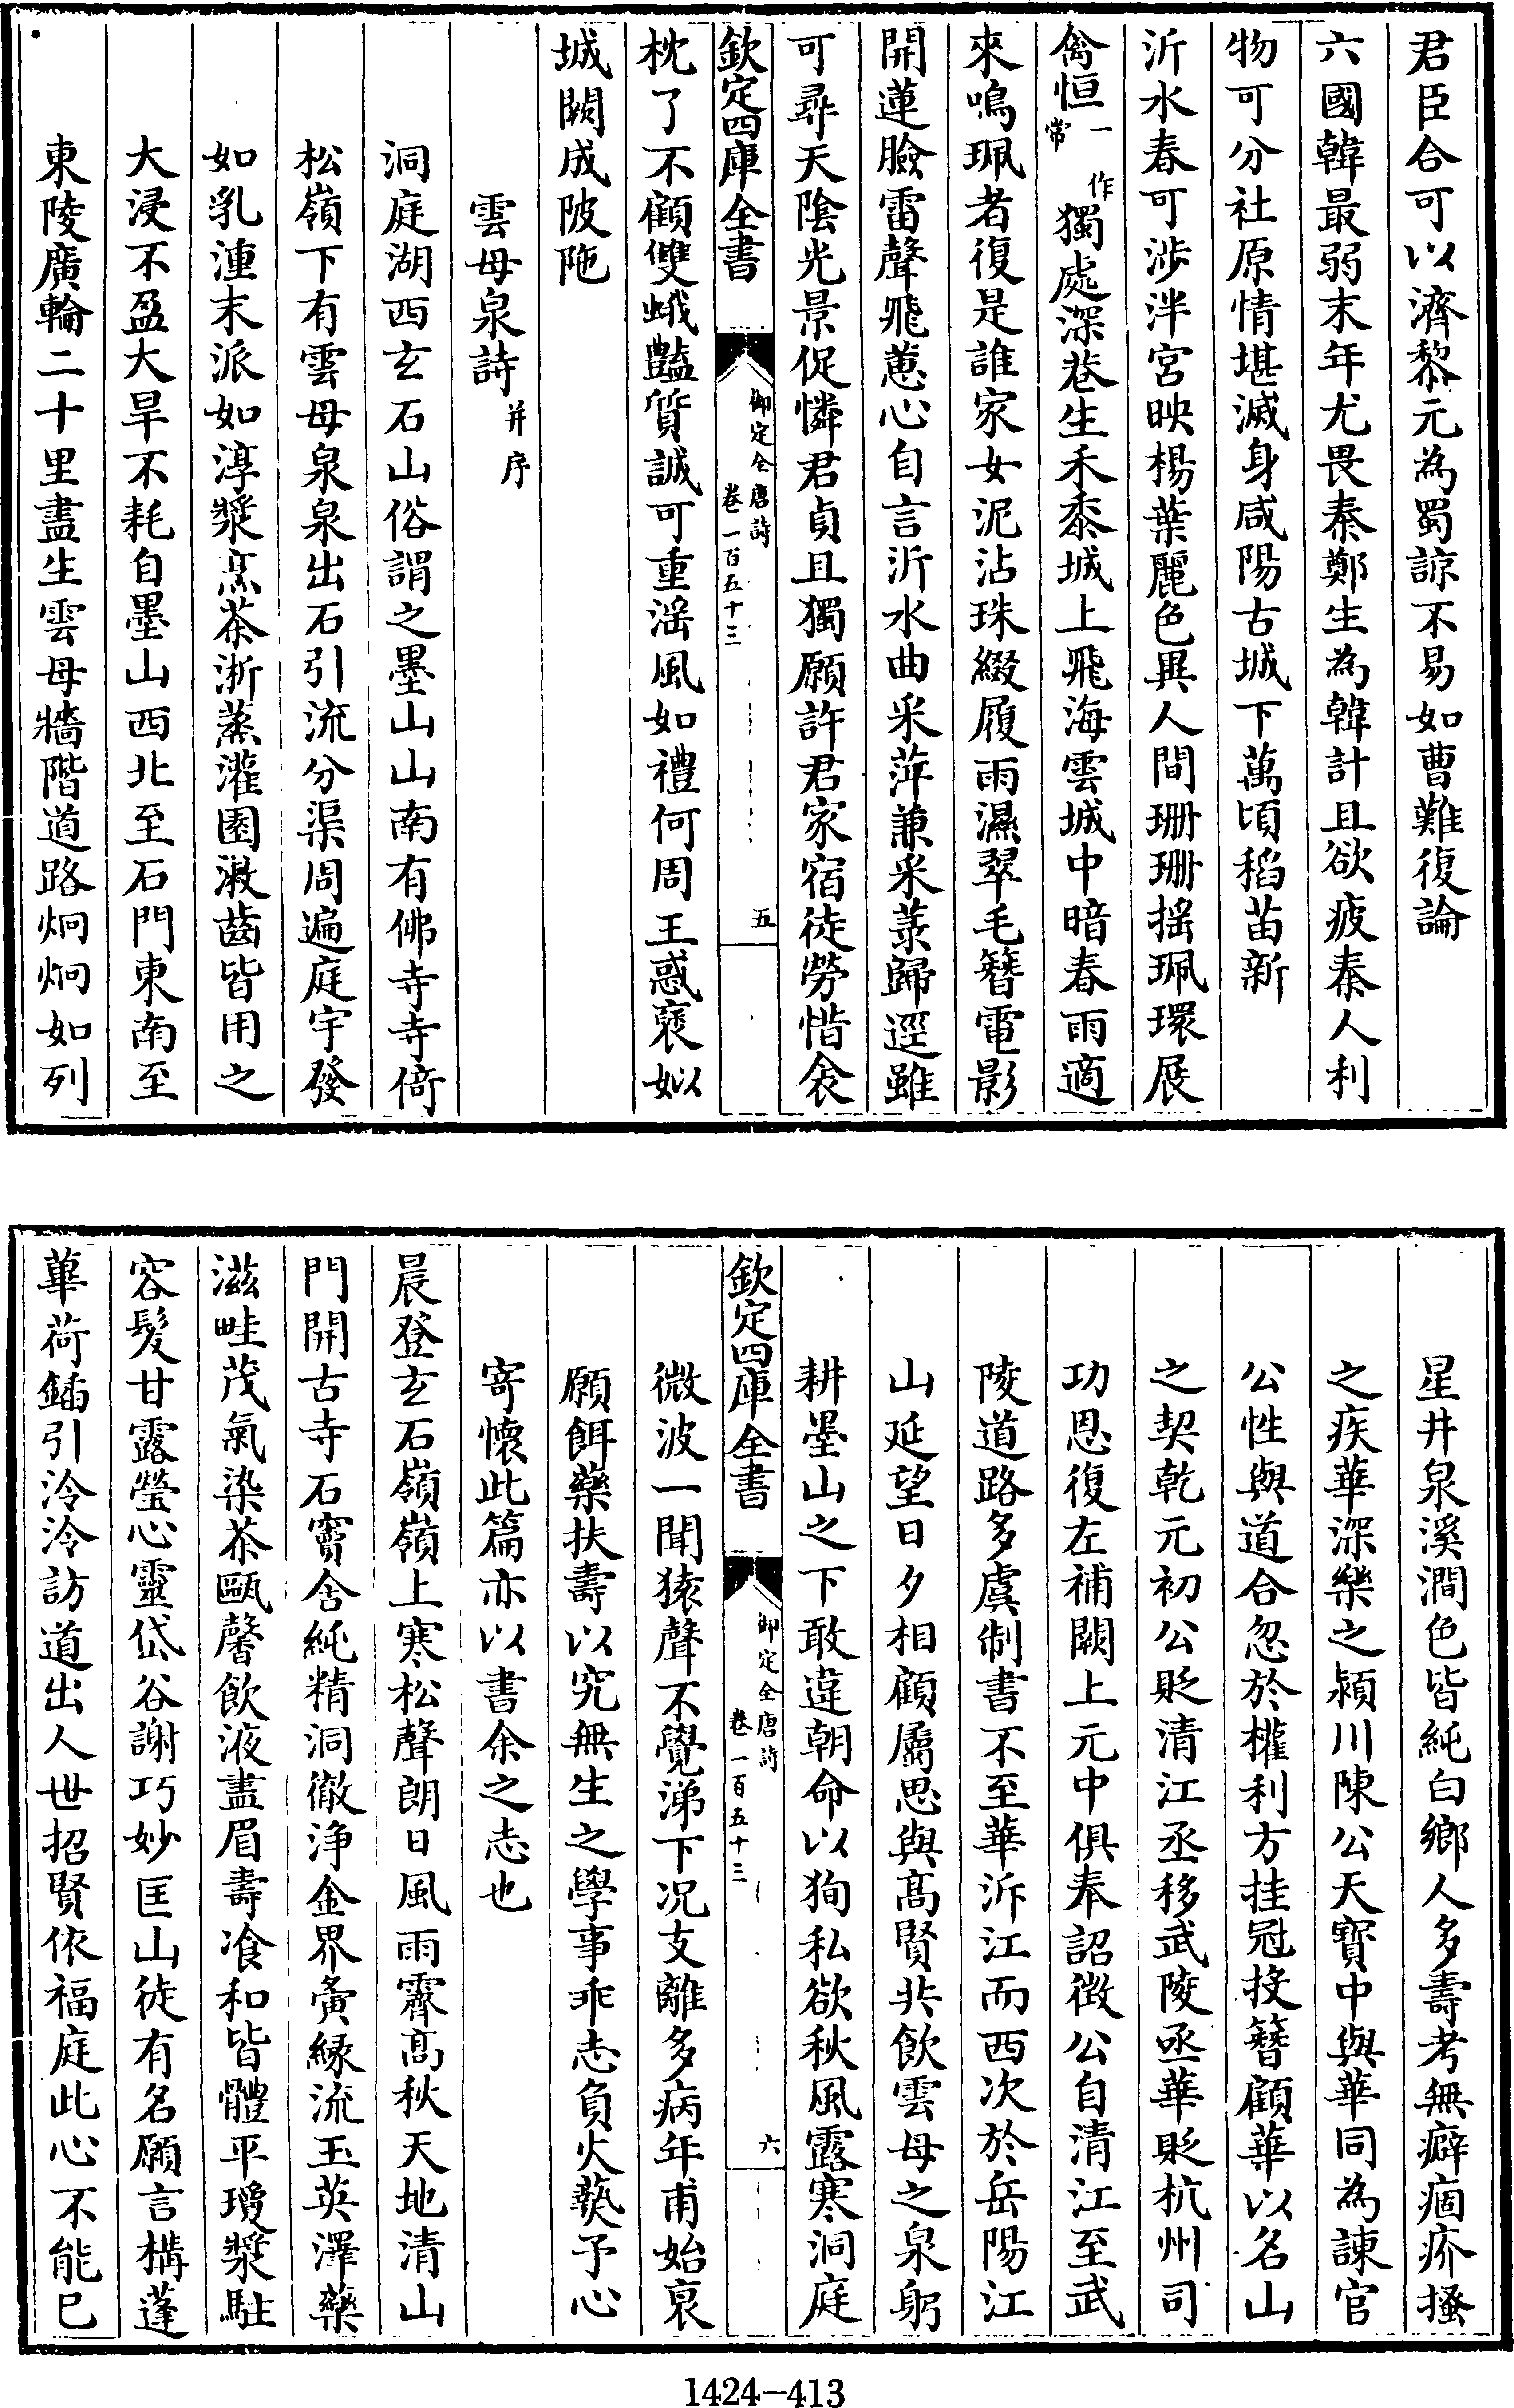 君臣合可以濟黎元為蜀諒不易如曹難復論
六國韓最弱末年尤畏秦鄭生為韓計且欲疲秦人利
物可分社原情堪滅身咸陽古城下萬頃稻苗新
沂水春可涉泮宮映楊葉麗色異人間珊珊搖珮環展
禽恒一作常獨處深巷生禾黍城上飛海雲城中暗春雨適
來鳴珮者復是誰家女泥沾珠綴履雨濕翠毛簪電影
開蓮臉雷聲飛蕙心自言沂水曲采萍兼采菉歸逕雖
可尋天陰光景促憐君貞且獨願許君家宿徒勞惜衾
欽定四庫全書 御定全唐詩 卷一百五十三 五
枕了不顧雙蛾豔質誠可重淫風如禮何周王惑襃姒
城闕成陂陁
雲母泉詩并序
洞庭湖西玄石山俗謂之墨山山南有佛寺寺倚
松嶺下有雲母泉泉出石引流分渠周遍庭宇發
如乳湩末派如淳漿烹茶淅蒸灌園漱齒皆用之
大浸不盈大旱不耗自墨山西北至石門東南至
東陵廣輪二十里盡生雲母牆階道路炯炯如列
星井泉溪澗色皆純白鄉人多壽考無癖痼疥搔
之疾華深樂之潁川陳公天寶中與華同為諫官
公性與道合忽於權利方挂冠投簪顧華以名山
之契乾元初公貶清江丞移武陵丞華貶杭州司
功恩復左補闕上元中俱奉詔徵公自清江至武
陵道路多虞制書不至華泝江而西次於岳陽江
山延望日夕相顧屬思與髙賢共飲雲母之泉躬
耕墨山之下敢違朝命以狥私欲秋風露寒洞庭
欽定四庫全書 御定全唐詩 卷一百五十三 六
微波一聞猿聲不覺涕下况支離多病年甫始衰
願餌藥扶壽以究無生之學事乖志負火爇予心
寄懷此篇亦以書余之志也
晨登玄石嶺嶺上寒松聲朗日風雨霽髙秋天地清山
門開古寺石竇含純精洞徹淨金界夤緣流玉英澤藥
滋畦茂氣染茶甌馨飲液盡眉壽飡和皆體平瓊漿駐
容髮甘露瑩心靈岱谷謝巧妙匡山徒有名願言構蓬
蓽荷鍤引泠泠訪道出人世招賢依福庭此心不能已
1424-413